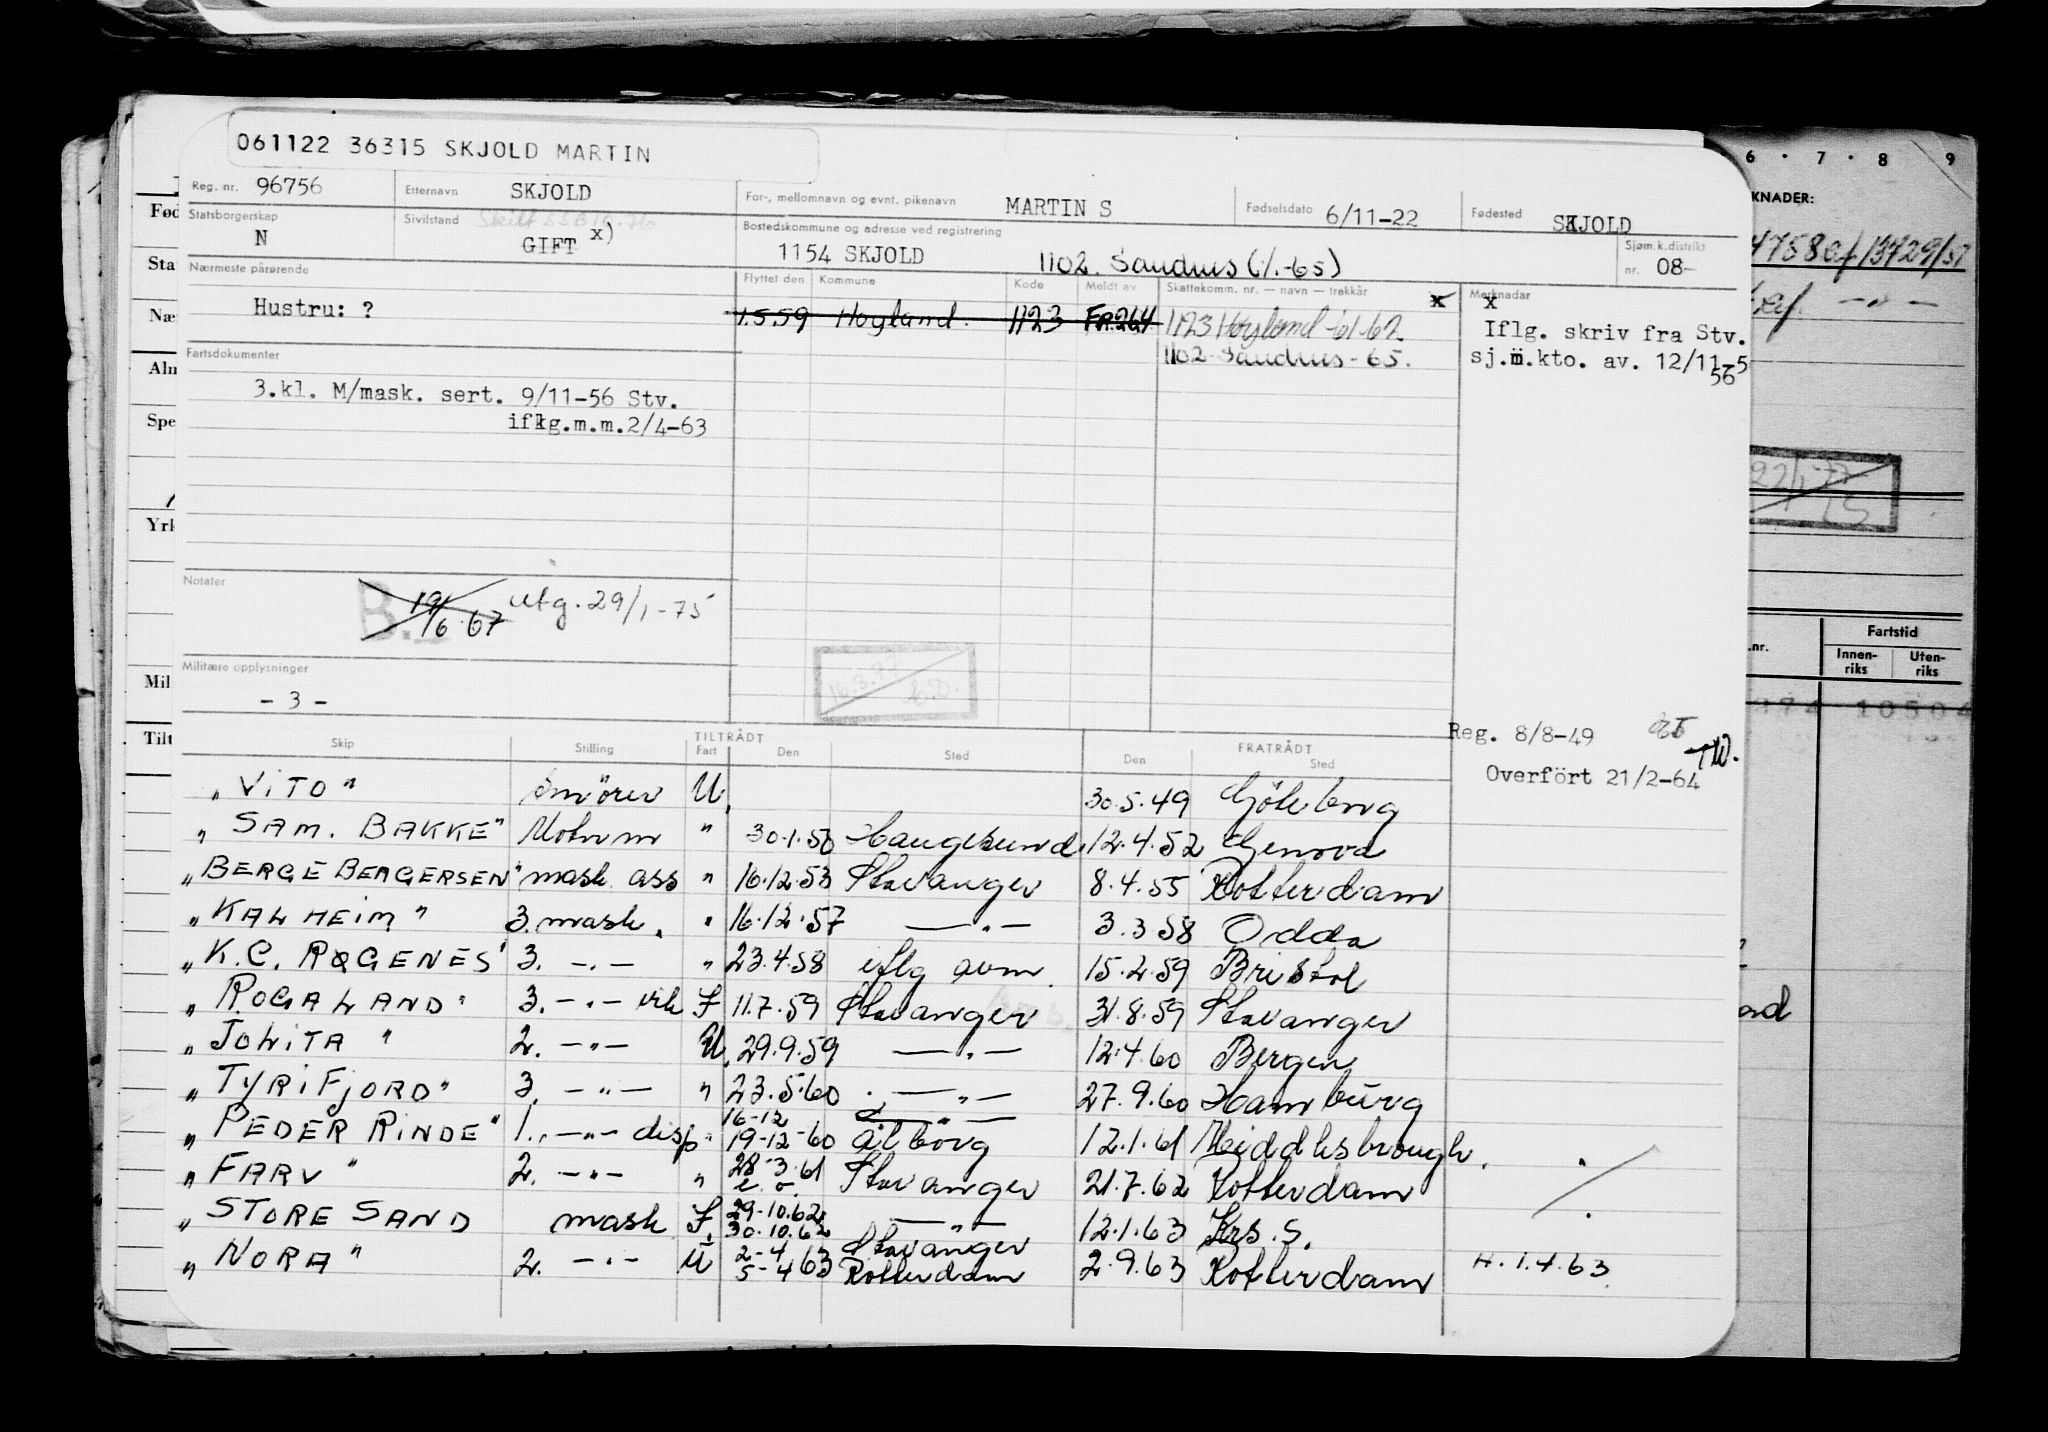 061122 36315 SKJOLD MARTIN
Reg. nr. 96756 Etternavn SKJOLD For-, mellomnavn og evnt. pikenavn MARTIN S Fødselsdato 6/11-22 Fødested SKJOLD
Statsborgerskap N Sivilstand GIFT x) Bostedskommune og adresse ved registrering 1154 SKJOLD 1102. Sandnes (1/1-65) Sjøm.k.distrikt nr. 08-
Nærmeste pårørende Hustru: ? Flyttet den Kommune Kode Meldt av Skattekomm. nr. — navn — trekkår x Merknadar
1.5.59 Høyland. 1123 FR.264 1123 Høyland -61-62
1102 - Sandnes - 65.
x
Iflg. skriv fra Stv.
sj.m.kto. av. 12/11-5
56
Fartsdokumenter
3.kl. M/mask. sert. 9/11-56 Stv.
iflg.m.m.2/4-63
Notater
B. 19/6-67 utg. 29/1-75
Militære opplysninger
- 3 -
16.3.77
Reg. 8/8-49
TW.
Overført 21/2-64
TILTRÅDT FRATRÅDT
Skip Stilling Fart Den Sted Den Sted
"VITO" Smører U. 30.5.49 Göteborg
"SAM. BAKKE" Motorm " 30.1.50 Haugesund. 12.4.52 Genova
"BERGE BERGERSEN" mask ass " 16.12.53 Stavanger 8.4.55 Rotterdam
"KALHEIM" 3. mask. " 16.12.57 —"— 3.3 58 Odda
"K.C. ROGENES" 3. —"— " 23.4.58 iflg avm. 15.2.59 Bristol
"ROGALAND" 3. —"— vik F 11.7.59 Stavanger 31.8.59 Stavanger
"JOLITA" 2. —"— U. 29.9.59 —"— 12.4.60 Bergen
"TYRIFJORD" 3. —"— " 23.5.60 —"— 27.9.60 Hamburg
"PEDER RINDE" 1. —"— disp " 16-12 19-12-60 —"— Ålborg 12.1.61 Middlesbrough.
"FARV" 2. —"— " 28.3.61 e.o. Stavanger 21.7.62 Rotterdam
"STORE SAND mask F. 29-10.62 30.10.62 —"— 12.1.63 Krs. S.
"NORA" 2. —"— U 2-4 5-4 63 Stavanger Rotterdam 2.9.63 Rotterdam H. 1.4.63
6 · 7 · 8 9
KNADER:
Fartstid
.nr. Innen-riks Uten-riks
10504
Fød
Sta
Næ
Alm
Spe
Yrk
Mil
Tilt